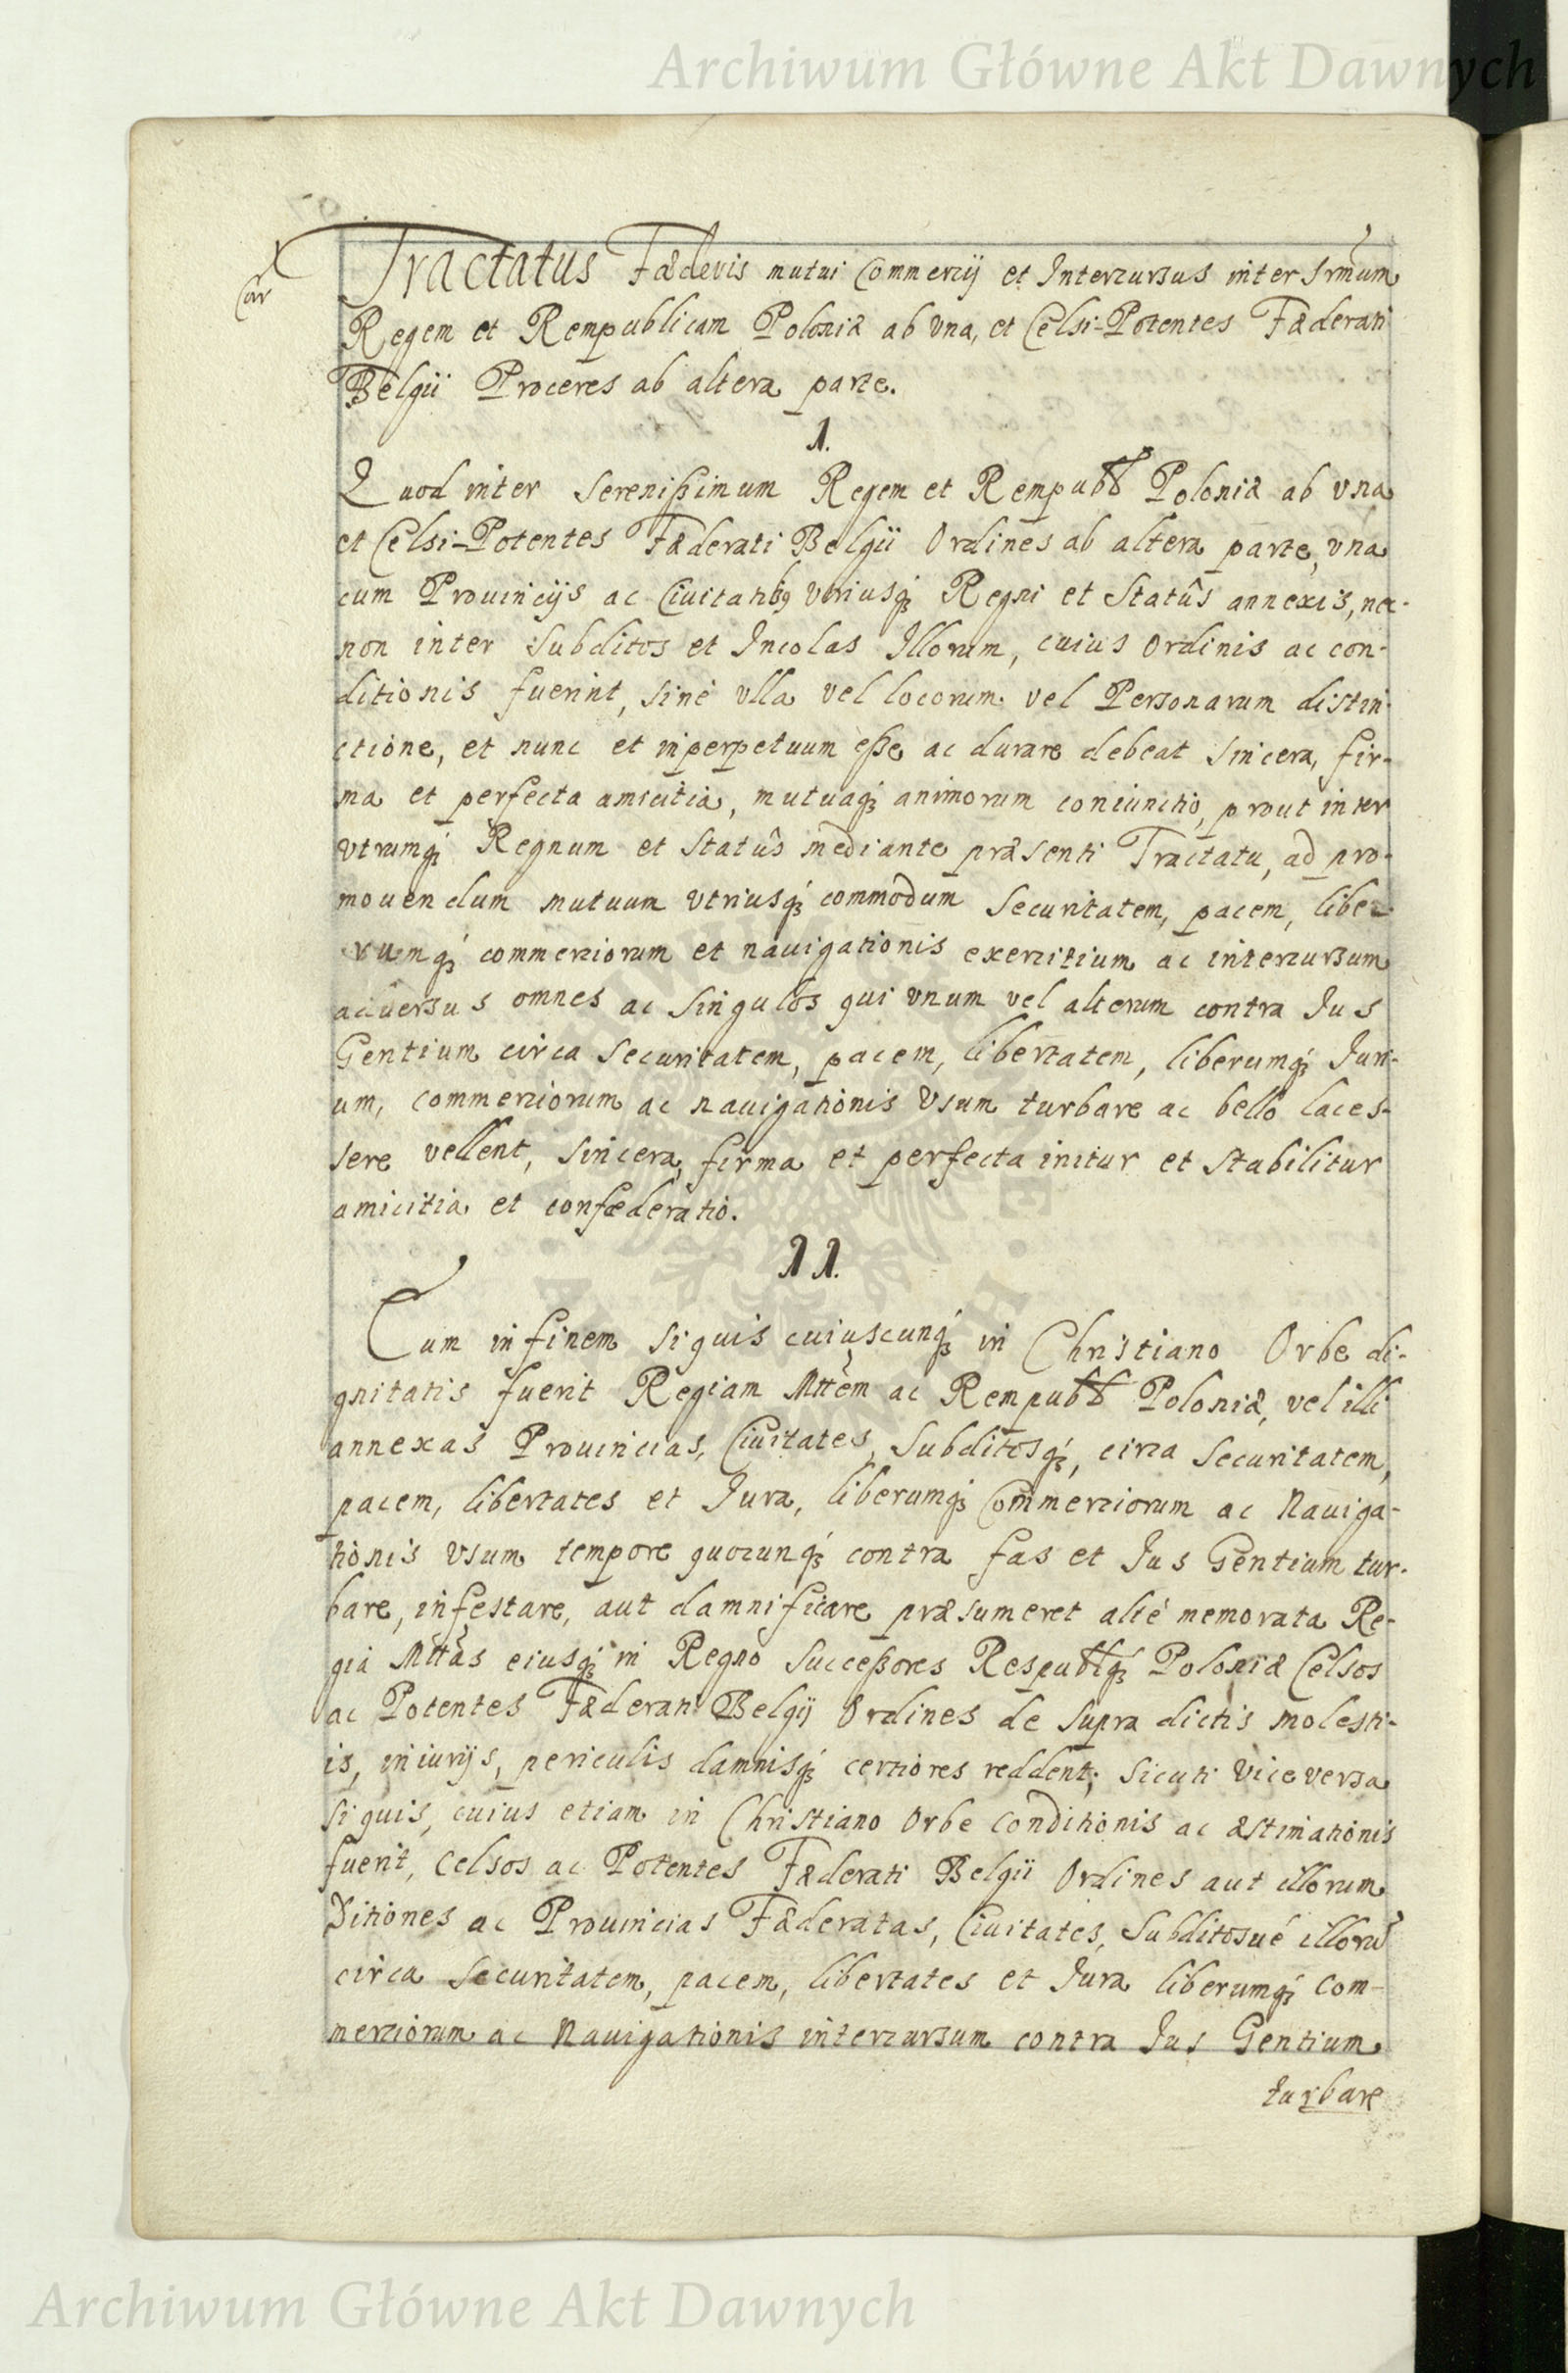 Archiwum Główne Akt Dawnych
Tractatus Fæderis mutui Commercij et Intercursus inter Srm̃um
Regem et Rempublicam Poloniæ ab vna, et Celsi-Potentes Fæderati
Belgii Proceres ab altera parte.
1.
Quod inter Serenißimum Regem et Rempubl Poloniæ ab vna
et Celsi-Potentes Fæderati Belgii Ordines ab altera parte, vna
cum Prouincijs ac Ciuitatibꝫ vtriusqꝫ Regni et Statûs annexis, nec-
non inter Subditos et Incolas Illorum, cuius Ordinis ac con-
ditionis fuerint, sinè vlla vel locorum vel Personarum distin-
ctione, et nunc et in perpetuum eße ac durare debeat sincera, fir-
ma et perfecta amicitia, mutuaqꝫ animorum coniunctio, prout inter
vtrumqꝫ Regnum et Statûs mediante præsenti Tractatu, ad pro-
mouendum mutuum vtriusqꝫ commodum Securitatem, pacem, libe-
rumqꝫ commerciorum et nauigationis exercitium ac intercursum
aduersus omnes ac singulos qui vnum vel alterum contra Jus
Gentium circa Securitatem, pacem, libertatem, liberumqꝫ Juri-
um, commerciorum ac nauigationis Vsum turbare ac bello laces-
sere vellent, sincera, firma et perfecta initur et stabilitur
amicitia et confœderatio.
11.
Cum in finem siquis cuiuscunqꝫ in Christiano Orbe di-
gnitatis fuerit Regiam Mttẽm ac Rempubl Poloniæ, vel illi
annexas Prouincias, Ciuitates, Subditosqꝫ, circa Securitatem,
pacem, libertates et Jura, liberumqꝫ Commerciorum ac Nauiga-
tionis vsum tempore quocunqꝫ contra fas et Jus Gentium tur-
bare, infestare, aut damnificare præsumeret altè memorata Re-
gia Mttãs eiusqꝫ in Regno Succeßores Respublqꝫ Poloniæ Celsos
ac Potentes Fæderati Belgij Ordines de supra dictis molesti-
is, iniurijs, periculis damnisqꝫ certiores reddent; sicuti vice versa
siquis, cuius etiam in Christiano Orbe Conditionis ac æstimationis
fuerit, Celsos ac Potentes Fæderati Belgii Ordines aut illorum
Ditiones ac Prouincias Fæderatas, Ciuitates, Subditosuè illorũ
circa Securitatem, pacem, libertates et Jura liberumqꝫ Com-
merciorum ac Nauigationis intercursum contra Jus Gentium
turbare
Archiwum Główne Akt Dawnych